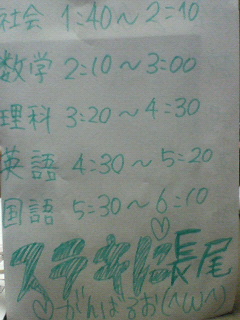 社会 1:40～2:10
数学 2:10～3:00
理科 3:20～4:30
英語 4:30～5:20
国語 5:30～6:10
スラキに長尾
♡がんばるお(^ω^)